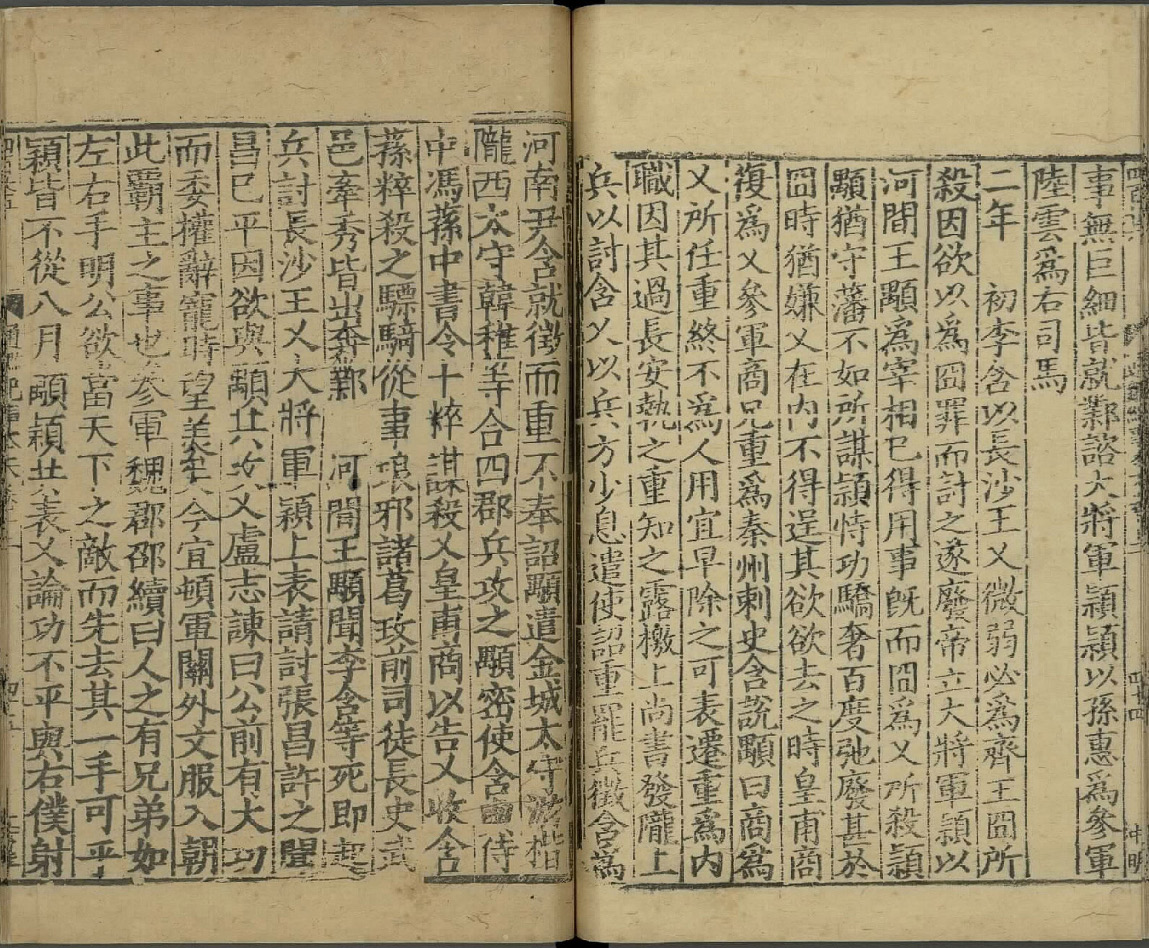 事無巨細皆就鄴諮大將軍穎穎以孫惠爲參軍
陸雲爲右司馬
二年 初李含以長沙王乂微弱必爲齊王冏所
殺因欲以爲冏罪而討之遂廢帝立大將軍穎以
河間王顒爲宰相己得用事旣而冏爲乂所殺穎
顒猶守藩不如所謀穎恃功驕奢百度弛廢甚於
冏時猶嫌乂在內不得逞其欲欲去之時皇甫商
復爲乂參軍商兄重爲秦州刺史含說顒曰商爲
乂所任重終不爲人用宜早除之可表遷重爲內
職因其過長安執之重知之露檄上尚書發隴上
兵以討含乂以兵方少息遣使詔重罷兵徵含爲
河南尹含就徵而重不奉詔顒遣金城太守游楷
隴西太守韓稚等合四郡兵攻之顒密使含與侍
中馮蓀中書令卞粹謀殺乂皇甫商以告乂收含
蓀粹殺之驃騎從事琅邪諸葛玫前司徒長史武
邑牽秀皆出奔鄴 河間王顒聞李含等死即起
兵討長沙王乂大將軍穎上表請討張昌許之聞
昌已平因欲與顒共攻乂盧志諫曰公前有大功
而委權辭寵時望美矣今宜頓軍關外文服入朝
此霸主之事也參軍魏郡邵續曰人之有兄弟如
左右手明公欲當天下之敵而先去其一手可乎
穎皆不從八月顒穎共表乂論功不平與右僕射